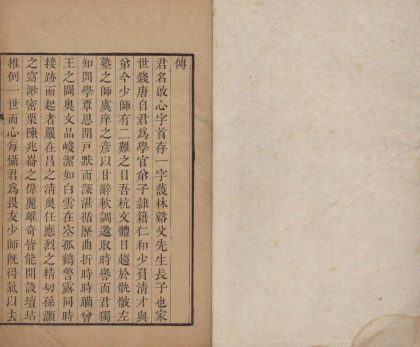 傳
君名啟心字首存一字蘐林谿父先生長子也家
世錢唐自君爲學官弟子隷籍仁和少負淸才與
弟今少師有二難之目吾杭文體日趨於骫骳左
塾之師虞庠之彥以甘辭軟調邀取時譽而君獨
知問學覃思閉戸默而深湛循歷曲折時時躪曾
王之闑奧文品峻潔如白雲在空孤鶴警露同時
接跡而起者嚴在昌之淸奥任應烈之精切孫灝
之窈渺密栗陳兆崙之偉麗雄奇皆能開設壇坫
推倒一世而心每懾君爲畏友少師旣得氣以去